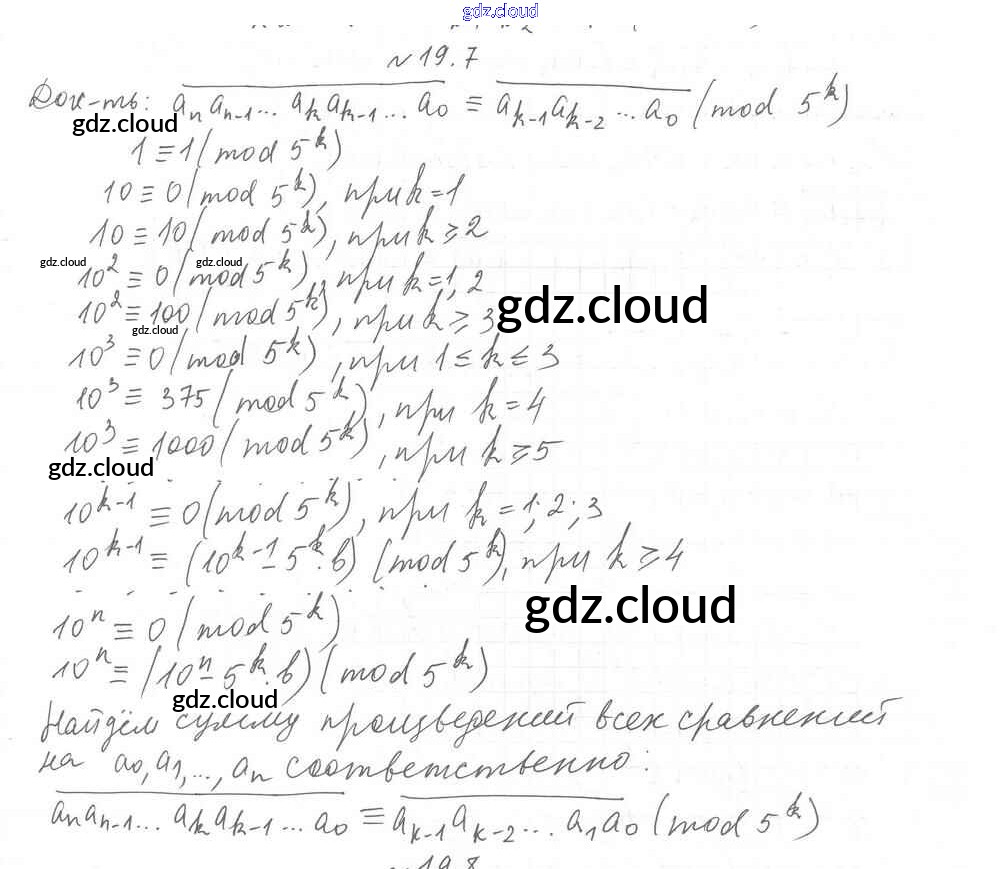 gdz.cloud
№ 19.7
Док-ть: aₙaₙ₋₁... aₖaₖ₋₁... a₀ ≡ aₖ₋₁aₖ₋₂ ... a₀ (mod 5ᵏ)
gdz.cloud
1 ≡ 1 (mod 5ᵏ)
10 ≡ 0 (mod 5ᵏ), при k = 1
10 ≡ 10 (mod 5ᵏ), при k ≥ 2
gdz.cloud gdz.cloud
10² ≡ 0 (mod 5ᵏ), при k = 1, 2
10² ≡ 100 (mod 5ᵏ), при k ≥ 3
gdz.cloud
gdz.cloud
10³ ≡ 0 (mod 5ᵏ), при 1 ≤ k ≤ 3
10³ ≡ 375 (mod 5ᵏ), при k = 4
10³ ≡ 1000 (mod 5ᵏ), при k ≥ 5
gdz.cloud
10ᵏ⁻¹ ≡ 0 (mod 5ᵏ), при k = 1; 2; 3
10ᵏ⁻¹ ≡ (10ᵏ⁻¹ - 5ᵏ·b) (mod 5ᵏ), при k ≥ 4
gdz.cloud
10ⁿ ≡ 0 (mod 5ᵏ)
10ⁿ ≡ (10ⁿ - 5ᵏ·b) (mod 5ᵏ)
gdz.cloud
Найдём сумму произведений всех сравнений
на a₀, a₁, ..., aₙ соответственно:
aₙaₙ₋₁... aₖaₖ₋₁... a₀ ≡ aₖ₋₁aₖ₋₂... a₁a₀ (mod 5ᵏ)